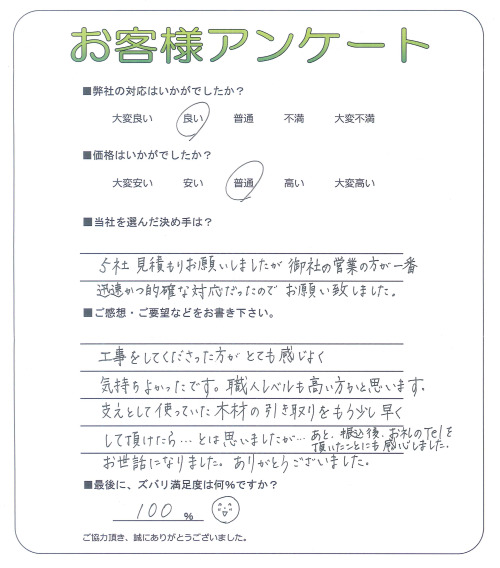 お客様アンケート
■弊社の対応はいかがでしたか？
大変良い 良い 普通 不満 大変不満
■価格はいかがでしたか？
大変安い 安い 普通 高い 大変高い
■当社を選んだ決め手は？
5社 見積もりお願いしましたが 御社の営業の方が一番
迅速かつ的確な対応だったので お願い致しました。
■ご感想・ご要望などをお書き下さい。
工事をしてくださった方が とても感じよく
気持ちよかったです。職人レベルも高い方かと思います。
支えとして使っていた木材の引き取りをもう少し早く
して頂けたら…とは思いましたが… あと、振込後、お礼のTelを
頂いたことにも感心しました。
お世話になりました。ありがとうございました。
■最後に、ズバリ満足度は何％ですか？
100 %
ご協力頂き、誠にありがとうございました。